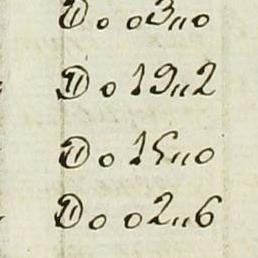 D o o3„o
D o 19„2
D o 15„o
D o o2„6